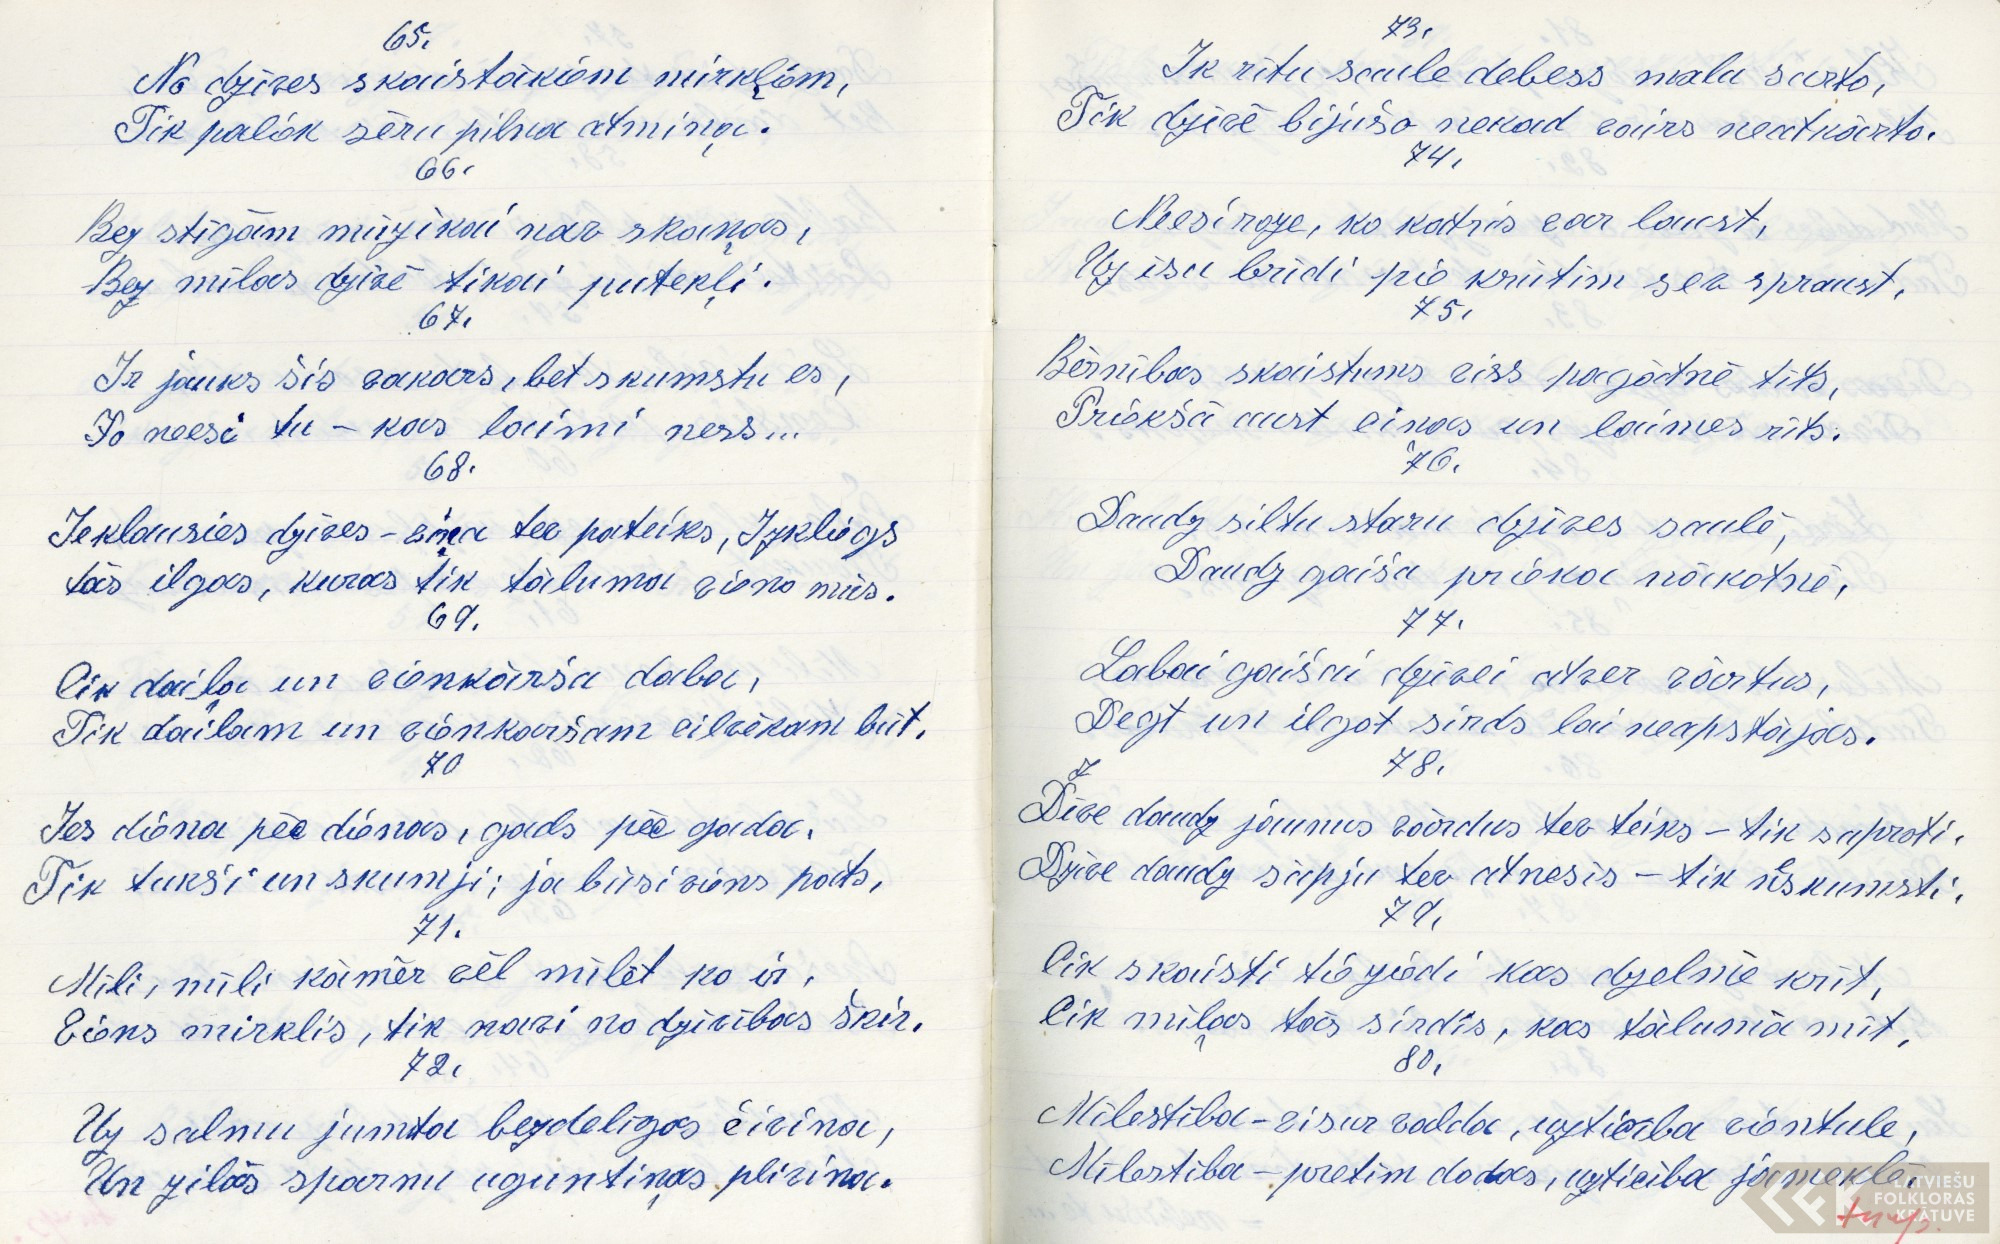 65.
No dzīves skaistākiem mirkļiem,
Tik paliek sēru pilna atmiņa.
66.
Bez stīgām mūzikai nav skaņas,
Bez mīlas dzīvē tikai putekļi.
67.
Ir jauks šis vakars, bet skumstu es,
Jo neesi tu – kas laimi ness...
68.
Ieklausies dzīves – viņa tev pateiks, Izkliegs
tās ilgas, kuras tik tāluma vieno mūs.
69.
Cik daiļa un vienkārša daba,
Tik daiļam un vienkaršam cilvēkam būt.
70
Ies diena pēc dienas, gads pēc gada.
Tik tukši un skumji; ja būsi viens pats,
71.
Mīli, mīli kāmēr vēl mīlēt ko ir,
Viens mirklis, tik navi no dzīvības šķir.
72.
Uz salmu jumta bezdelīgas čivina,
Un zilās sparnu uguntiņas plivina.
73.
Ik rītu saule debess malu sarto,
Tik dzīvē bijušo nekad vairs neatkārto.
74.
Neesi roze, ko katris var laust,
Uz īsu brīdi pie krūtim sev spraust.
75.
Bērnības skaistums viss pagātnē tīts,
Priekšā aust cīņas un laimes rīts.
76.
Daudz siltu staru dzīves saulē,
Daudz gaiša prieka nākotnē,
77.
Labai gaišai dzīvei atver vārtus,
Degt un ilgot sirds lai neapstājas.
78.
z
Dīve daudz jaunus vārdus tev teiks – tik saproti.
Dzīve daudz sāpju tev atnesīs – tik neskumsti.
79.
Cik skaisti tie ziedi kas dzelmē krīt,
Cik mīļas tās sirdis, kas tālumā mīt,
80.
Mīlestība – visur valda, uzticība vientule,
Mīlestība – pretim dodas, uzticība jāmeklē.
LATVIEŠU
FOLKLORAS
KRĀTUVE